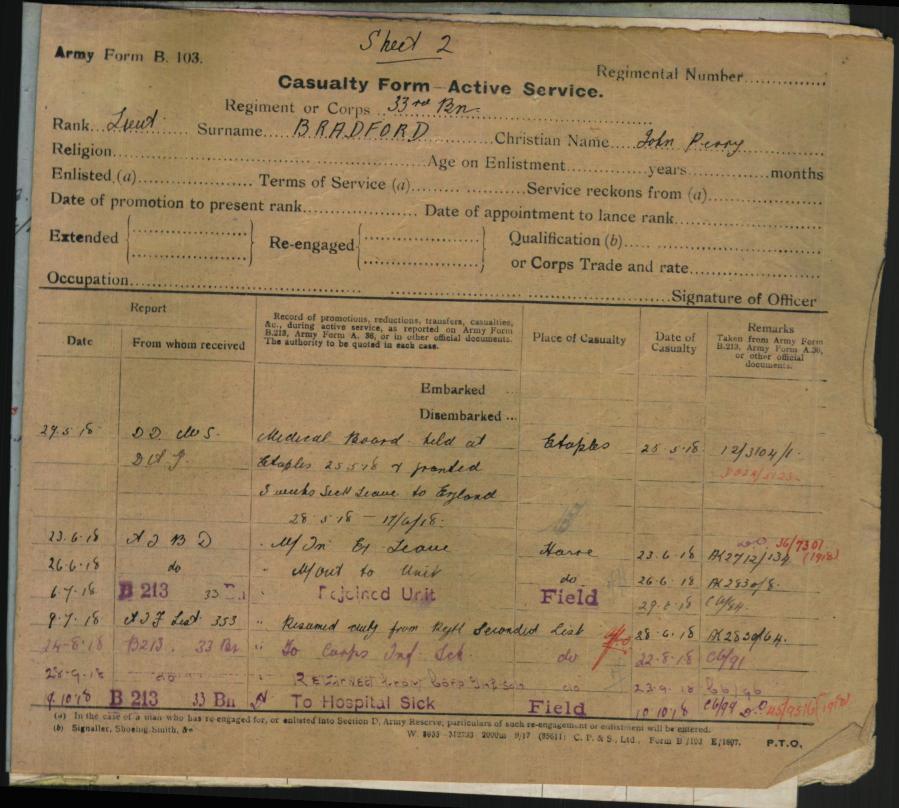 Sheet 2
Army Form B. 103.
Regimental Number
Casualty Form—Active Service.
Regiment or Corps 33rd Bn
Rank Lieut Surname BRADFORD Christian Name John Perry
Religion Age on Enlistment years months
Enlisted (a) Terms of Service (a) Service reckons from (a)
Date of promotion to present rank Date of appointment to lance rank
Extended Re-engaged Qualification (b)
or Corps Trade and rate
Occupation
Signature of Officer
Report
Date From whom received
Record of promotions, reductions, transfers, casualties, &c., during active service, as reported on Army Form B.213, Army Form A. 36, or in other official documents. The authority to be quoted in each case.
Place of Casualty
Date of Casualty
Remarks
Taken from Army Form B.213, Army Form A.36, or other official documents.
Embarked ...
Disembarked ...
29.5.18 D D M S. Medical Board held at Etaples 25.5.18 12/3104/1.
D A G Etaples 25.5.18 & granted
3 weeks Sick Leave to England
28.5.18 — 17/6/18.
23.6.18 A I B D M/In Ex Leave Havre 23.6.18 AK2712/134 36/7301 (1918)
26.6.18 do M/Out to Unit do 26.6.18 AK2830/8.
6.7.18 B 213 33 Bn Rejoined Unit Field 29.6.18 C6/84.
9.7.18 A I F List 353 Resumed duty from Regtl Seconded List 28.6.18 AK2830/64.
24-8-18 B213. 33 Bn " To Corps Inf. Sch. do 22-8-18 C6/91
28-9-18 do Returned from Corp Inf Sch do 23.9.18 C6/96
9.10.18 B 213 33 Bn To Hospital Sick Field 10.10.18 C6/99
(a) In the case of a man who has re-engaged for, or enlisted into Section D, Army Reserve, particulars of such re-engagement or enlistment will be entered.
(b) Signaller, Shoeing-Smith, &c
C. P. & S., Ltd., Form B/103 E/1607. P.T.O.